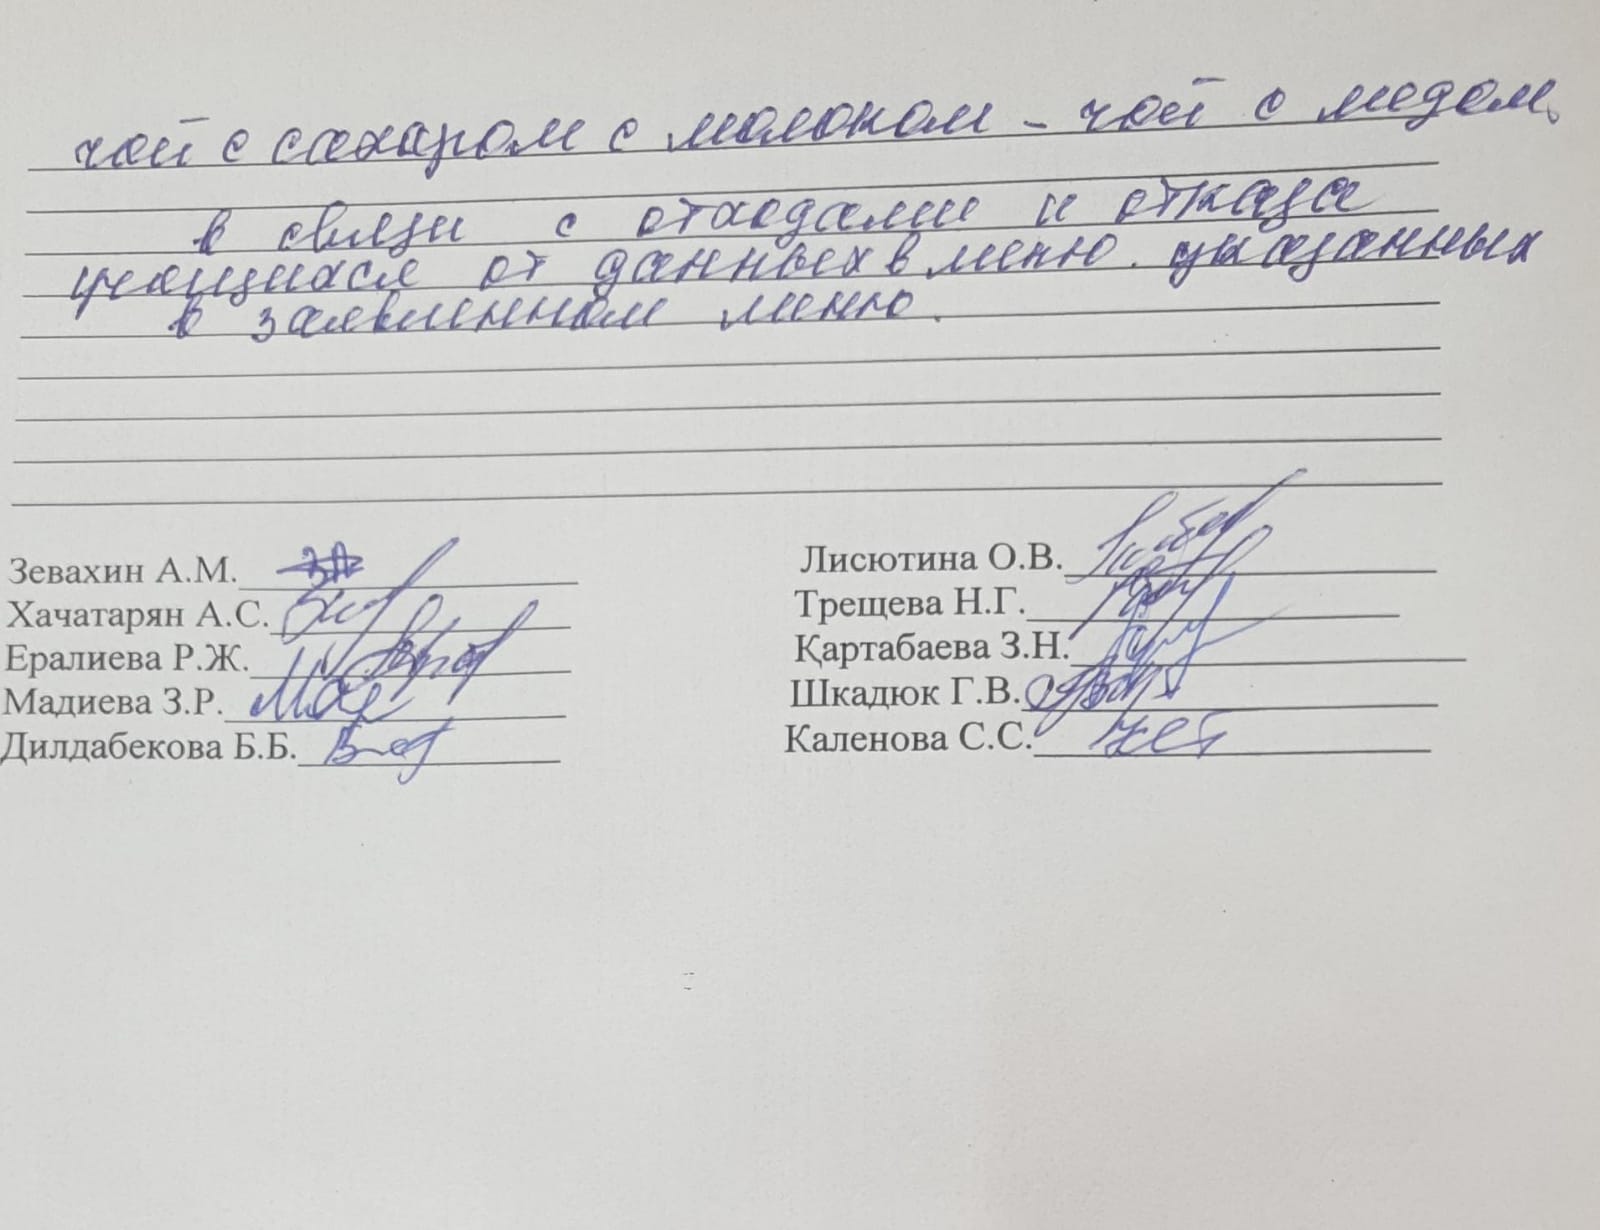 чай с сахаром с молоком – чай с медом.
в связи с отходами и отказа
учащихся от данных в меню. указанных
в заявленном меню.
Зевахин А.М.
Лисютина О.В.
Хачатарян А.С.
Трещева Н.Г.
Ералиева Р.Ж.
Қартабаева З.Н.
Мадиева З.Р.
Шкадюк Г.В.
Дилдабекова Б.Б.
Каленова С.С.